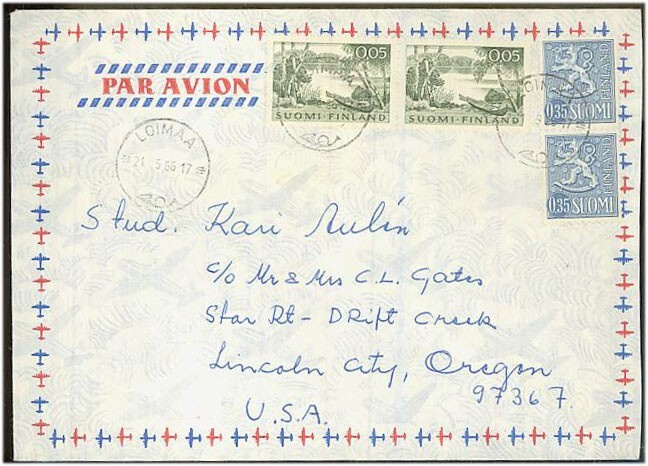 PAR AVION
0.05
SUOMI-FINLAND
0.05
SUOMI-FINLAND
FINLAND
0.35 SUOMI
FINLAND
0.35 SUOMI
LOIMAA
21. 5.66 17
LOIMAA
5.66 17
Stud. Kari
c/o Mr & Mrs C.L. Gates
Star Rt - Drift Creek
Lincoln City, Oregon
97367.
U.S.A.